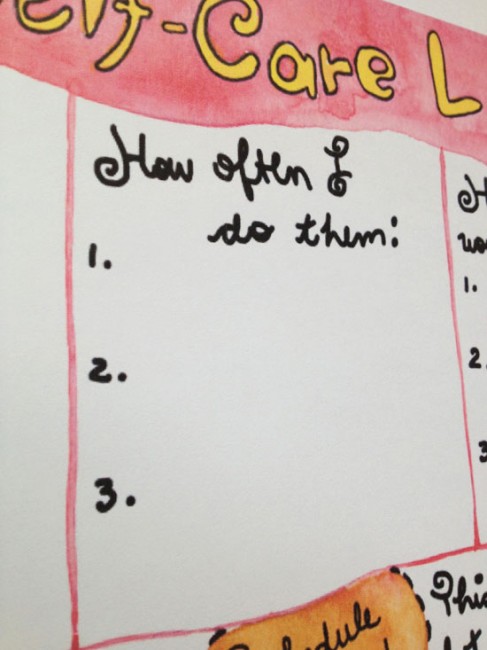 Self-Care L
How often I
do them:
1.
2.
3.
1.
2.
3
Schedule
This